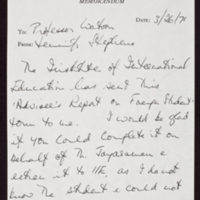 MEMORANDUM
DATE: 5/26/71
TO: Professor Watson
FROM: Stephens
The Institute of International
Education has sent this
"Advisee's Report on Foreign Student"
form to me. I would be glad
if you could complete it on
behalf of Mr Jayaraman &
return it to IIE, as I do not
know the student & could not